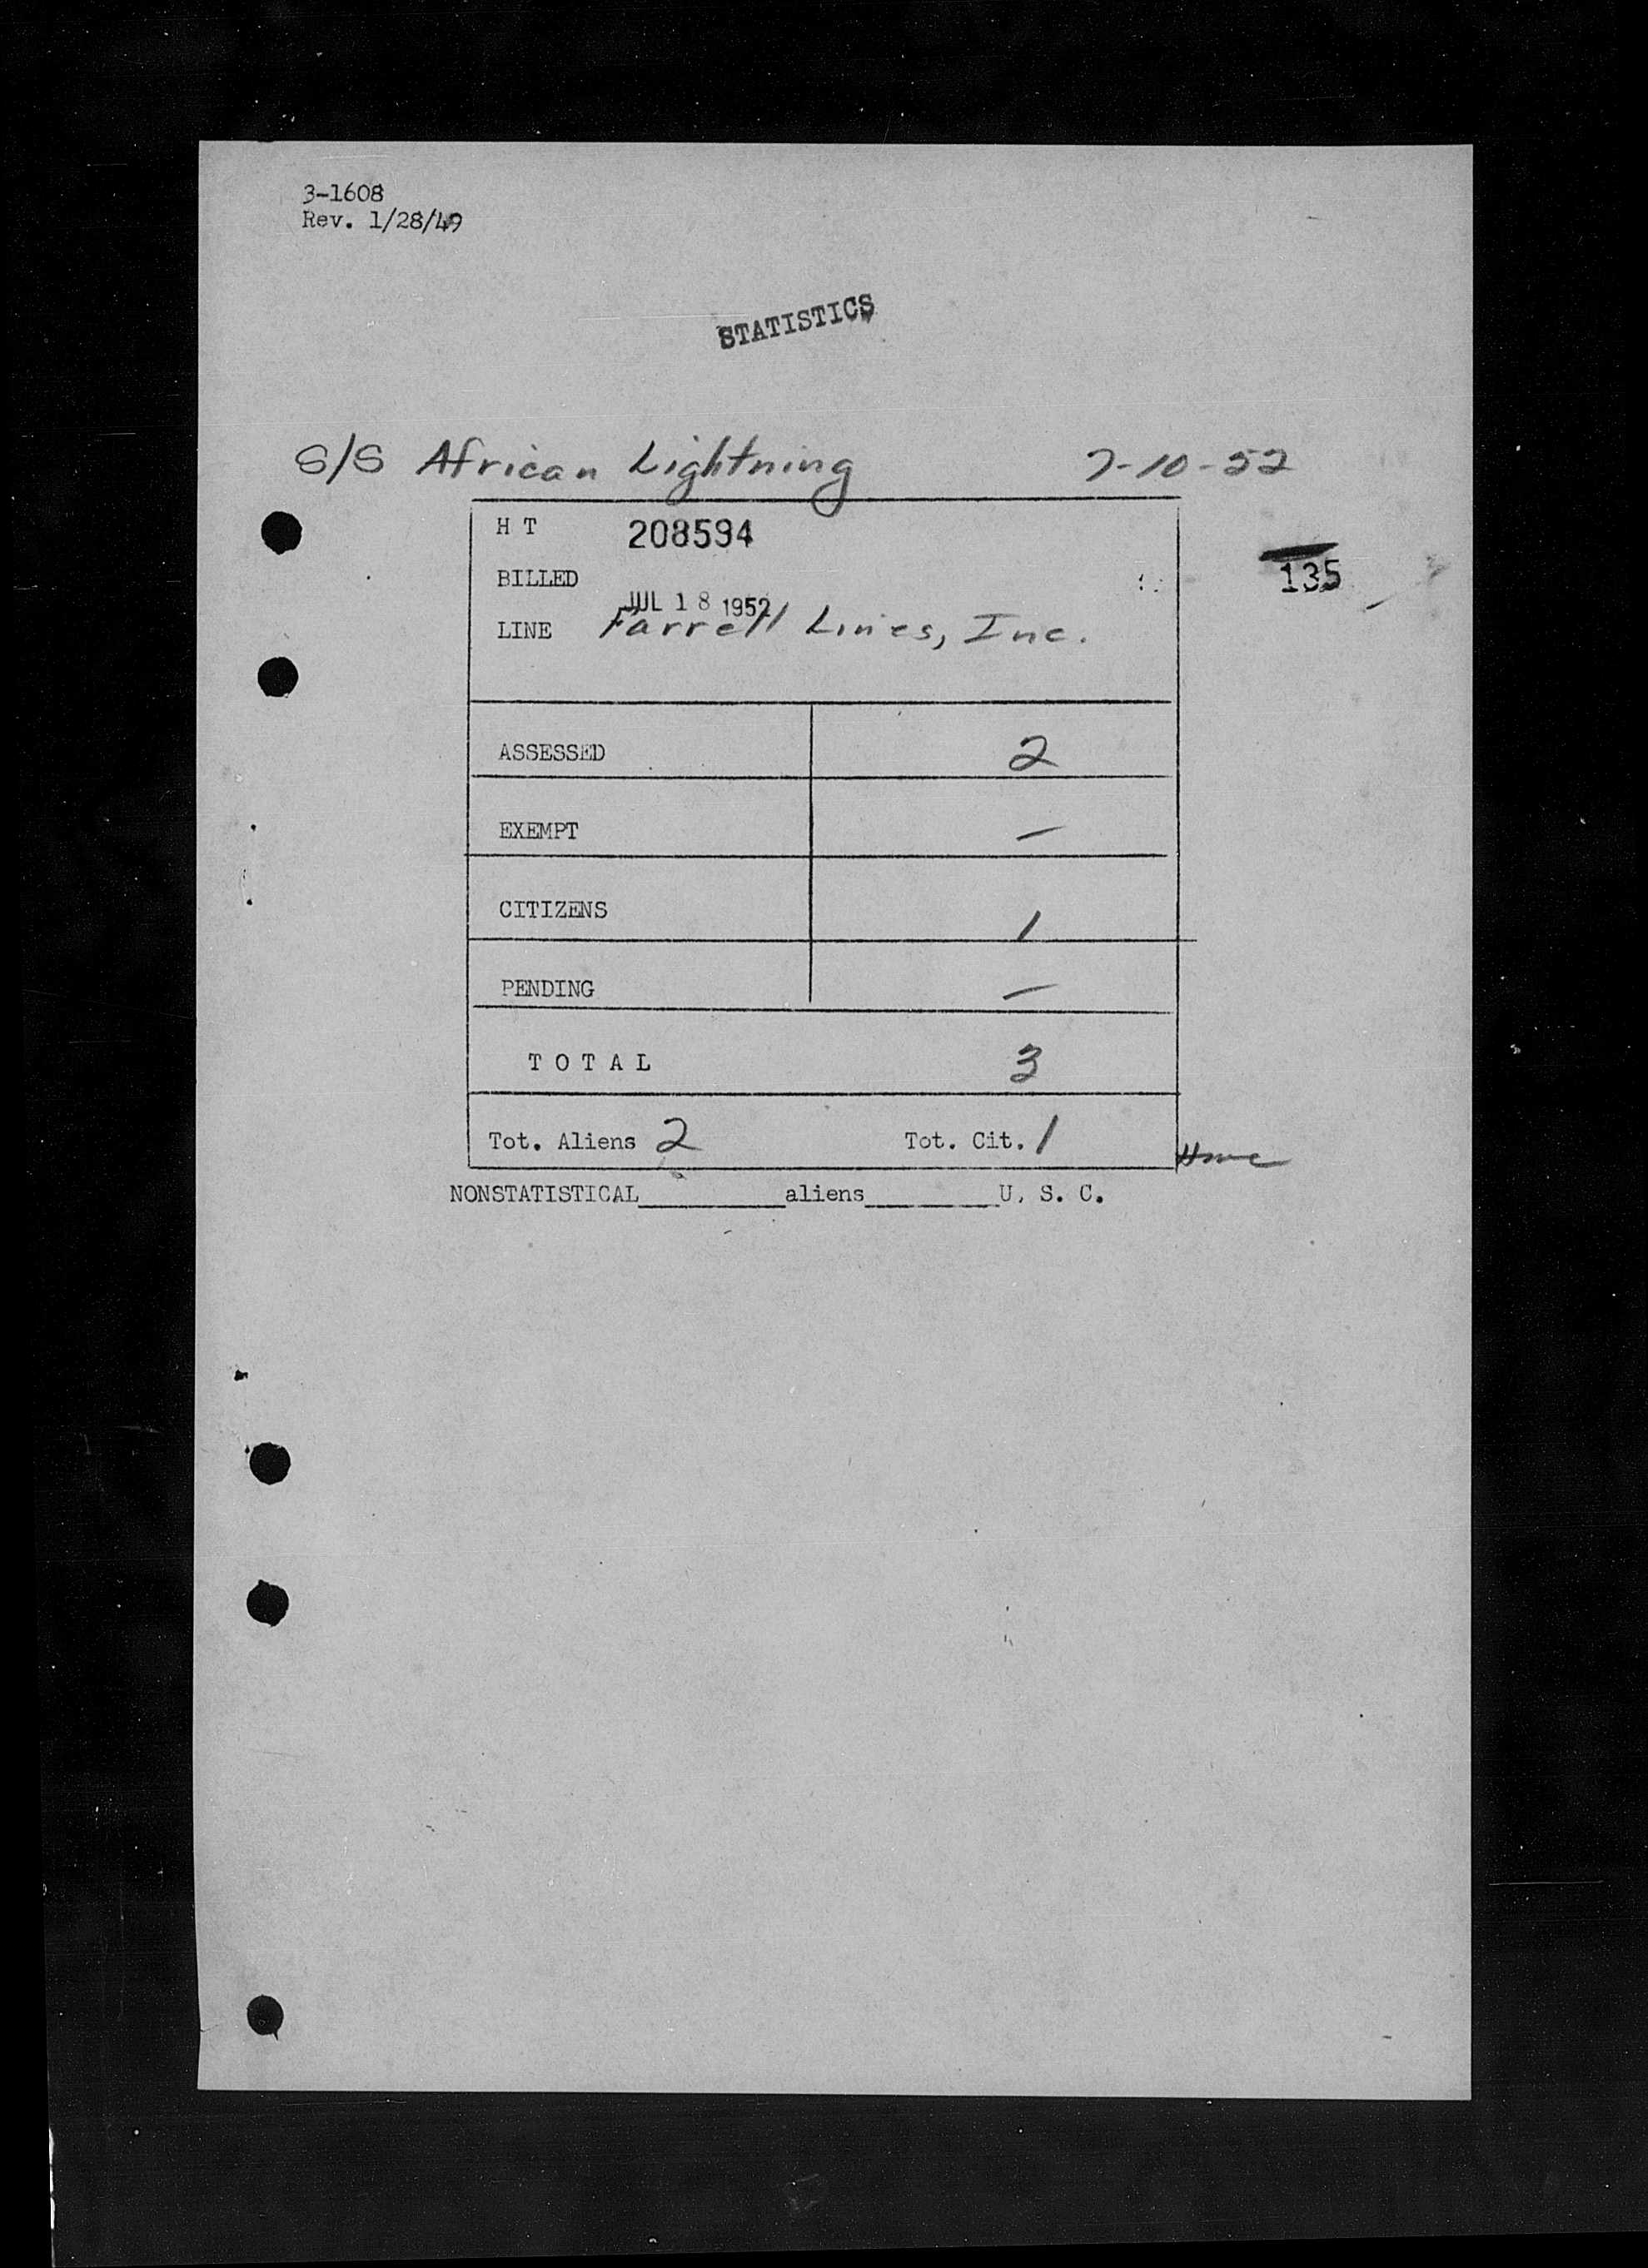 3-1608
Rev. 1/28/49
STATISTICS
S/S African Lightning 7-10-52
H T 208594
135
BILLED JUL 18 1952
LINE Farrell Lines, Inc.
ASSESSED 2
EXEMPT —
CITIZENS 1
PENDING —
T O T A L 3
Tot. Aliens 2 Tot. Cit. 1
NONSTATISTICAL__________aliens_________U. S. C.